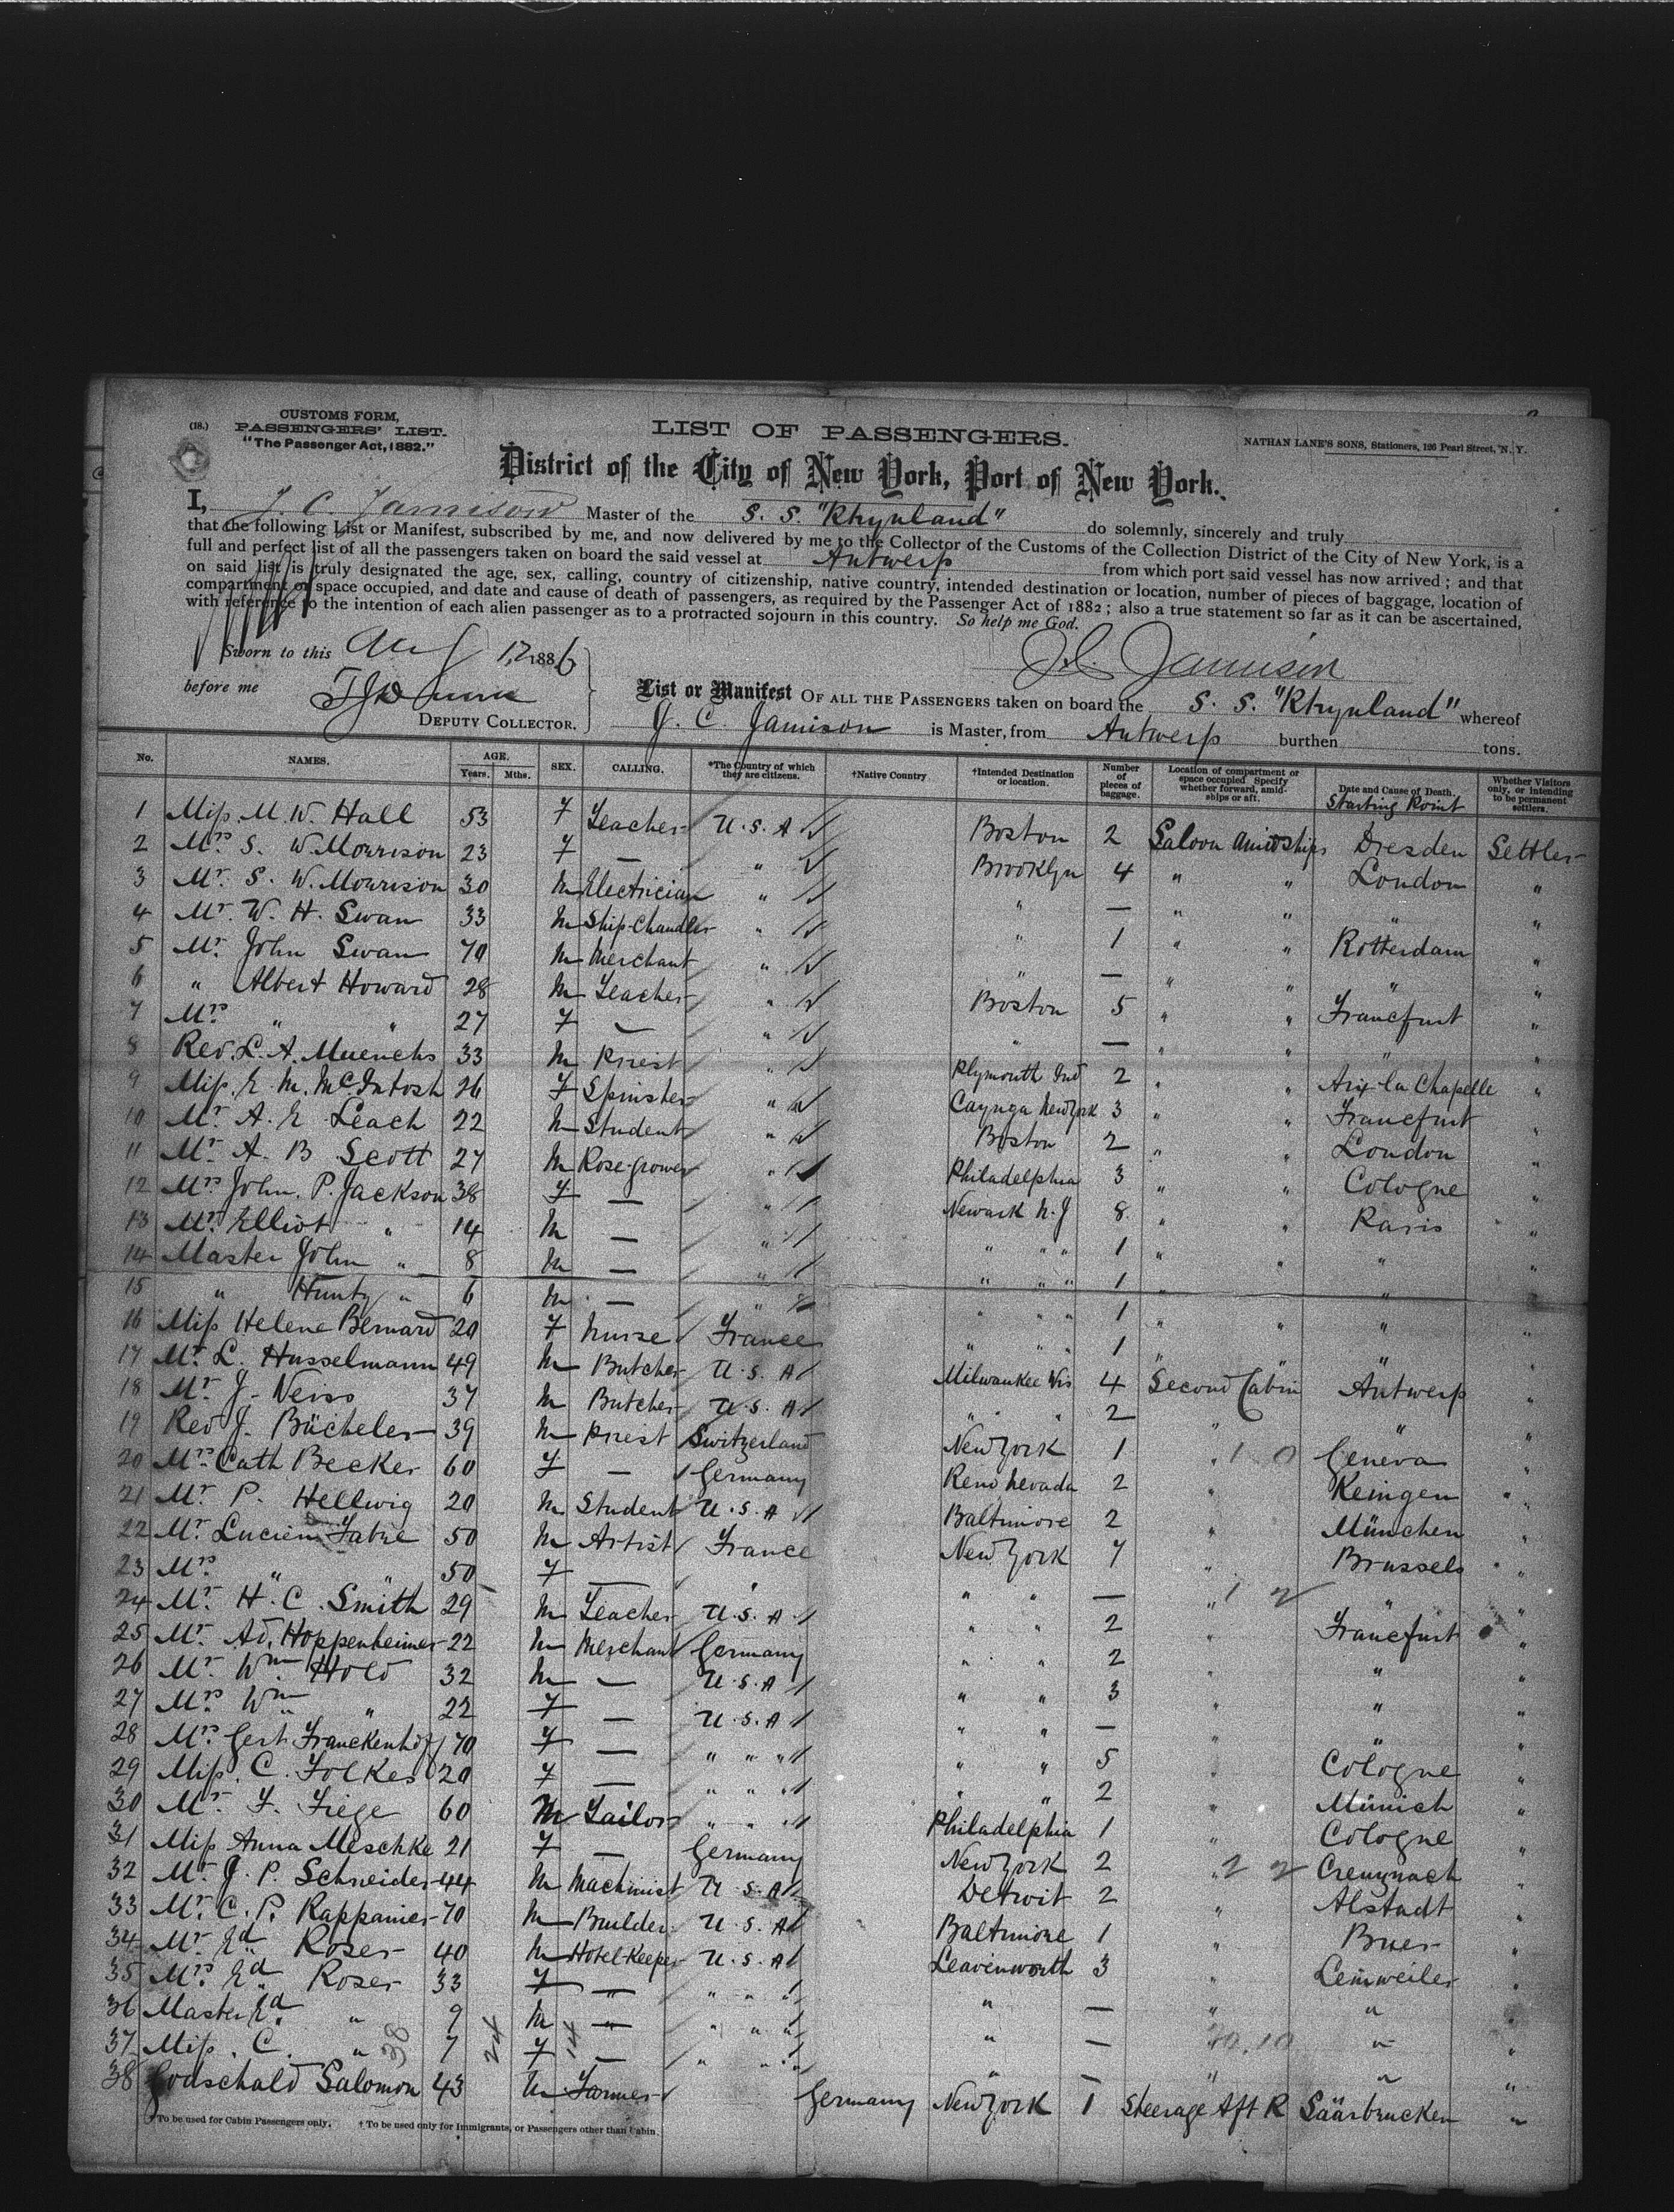 (18.)
CUSTOMS FORM,
PASSENGERS' LIST.
"The Passenger Act, 1882."
LIST OF PASSENGERS.
NATHAN LANE'S SONS, Stationers, 126 Pearl Street, N. Y.
District of the City of New York, Port of New York.
I, J. C. Jamison Master of the S. S. "Rhynland" do solemnly, sincerely and truly
that the following List or Manifest, subscribed by me, and now delivered by me to the Collector of the Customs of the Collection District of the City of New York, is a
full and perfect list of all the passengers taken on board the said vessel at Antwerp from which port said vessel has now arrived; and that
on said list is truly designated the age, sex, calling, country of citizenship, native country, intended destination or location, number of pieces of baggage, location of
compartment or space occupied, and date and cause of death of passengers, as required by the Passenger Act of 1882; also a true statement so far as it can be ascertained,
with reference to the intention of each alien passenger as to a protracted sojourn in this country. So help me God.
Sworn to this Aug 12 1886
J C Jamison
before me
DEPUTY COLLECTOR.
List or Manifest OF ALL THE PASSENGERS taken on board the S. S. "Rhynland" whereof
J. C. Jamison is Master, from Antwerp burthen tons.
No. NAMES. AGE. Years. Mths. SEX. CALLING. *The Country of which they are citizens. †Native Country †Intended Destination or location. Number of pieces of baggage. Location of compartment or space occupied Specify whether forward, amidships or aft. Date and Cause of Death. Starting Point Whether Visitors only, or intending to be permanent settlers.
1 Miss M. W. Hall 53 F Teacher U. S. A Boston 2 Saloon Amidships Dresden Settler
2 Mrs S. W. Morrison 23 F — " Brooklyn 4 " " London "
3 Mr. S. W. Morrison 30 M Electrician " " — " " " "
4 Mr. W. H. Swan 33 M Ship-Chandler " " 1 " " Rotterdam "
5 Mr. John Swan 70 M Merchant " " — " " " "
6 " Albert Howard 28 M Teacher " Boston 5 " " Francfurt "
7 Mrs " " 27 F — " " — " " " "
8 Rev. L. A. Muenchs 33 M Priest " Plymouth Ind 2 " " Aix-la Chapelle "
9 Miss E. M. McIntosh 26 F Spinster " Cayuga New York 3 " " Francfurt "
10 Mr. A. E. Leach 22 M Student " Boston 2 " " London "
11 Mr. A. B Scott 27 M Rose-grower " Philadelphia 3 " " Cologne "
12 Mrs John. P. Jackson 38 F — " Newark N. J 8 " " Paris "
13 Mr. Elliot " 14 M — " " " " 1 " " " "
14 Master John " 8 M — " " " " 1 " " " "
15 " " 6 M — " " " " 1 " " " "
16 Miss Helene Bernard 20 F Nurse France " " " 1 " " " "
17 Mr. L. Husselmann 49 M Butcher U. S. A Milwaukee Wis 4 Second Cabin Antwerp "
18 Mr J. Neiss 37 M Butcher U. S. A " " 2 " " "
19 Rev J. Bücheler 39 M Priest Switzerland New York 1 " 1 0 Geneva "
20 Mrs Cath Becker 60 F — Germany Reno Nevada 2 " "
21 Mr P. Hellwig 20 M Student U. S. A Baltimore 2 " München "
22 Mr. Lucien Fabre 50 M Artist France New York 7 " Brussels "
23 Mrs " " 50 F — " " " — " 1 2 " "
24 Mr. H. C. Smith 29 M Teacher U. S. A " " 2 " Francfurt "
25 Mr. Ad. Hoppenheimer 22 M Merchant Germany " " 2 " " "
26 Mr. Wm Hold 32 M — U. S. A " " 3 " " "
27 Mrs Wm " 22 F — U. S. A " " — " " "
28 Mrs Gert Franckenhoff 70 F — " " " " " 5 " Cologne "
29 Miss. C. Folkes 20 F — " " " " " 2 " Münich "
30 Mr. F. Fiege 60 M Tailor " " " Philadelphia 1 " Cologne "
31 Miss Anna Meschke 21 F — Germany New York 2 " 2 2 Creuznach "
32 Mr. J. P. Schneider 44 M Machinist U S. A Detroit 2 " Alstadt "
33 Mr. C. P. Rappanier 70 M Builder U. S. A Baltimore 1 " "
34 Mr. Ed Roser 40 M Hotel-Keeper U. S. A Leavenworth 3 " "
35 Mrs. Ed Roser 33 F — " " " " — " " "
36 Master Ed. " 9 M — " " " " — " " "
37 Miss. C. " 7 F — " " " " — " " "
38 Godschald Salomon 43 M Farmer Germany New York 1 Steerage Aft R Säarbrucken "
38 24 14
*To be used for Cabin Passengers only. †To be used only for Immigrants, or Passengers other than Cabin.